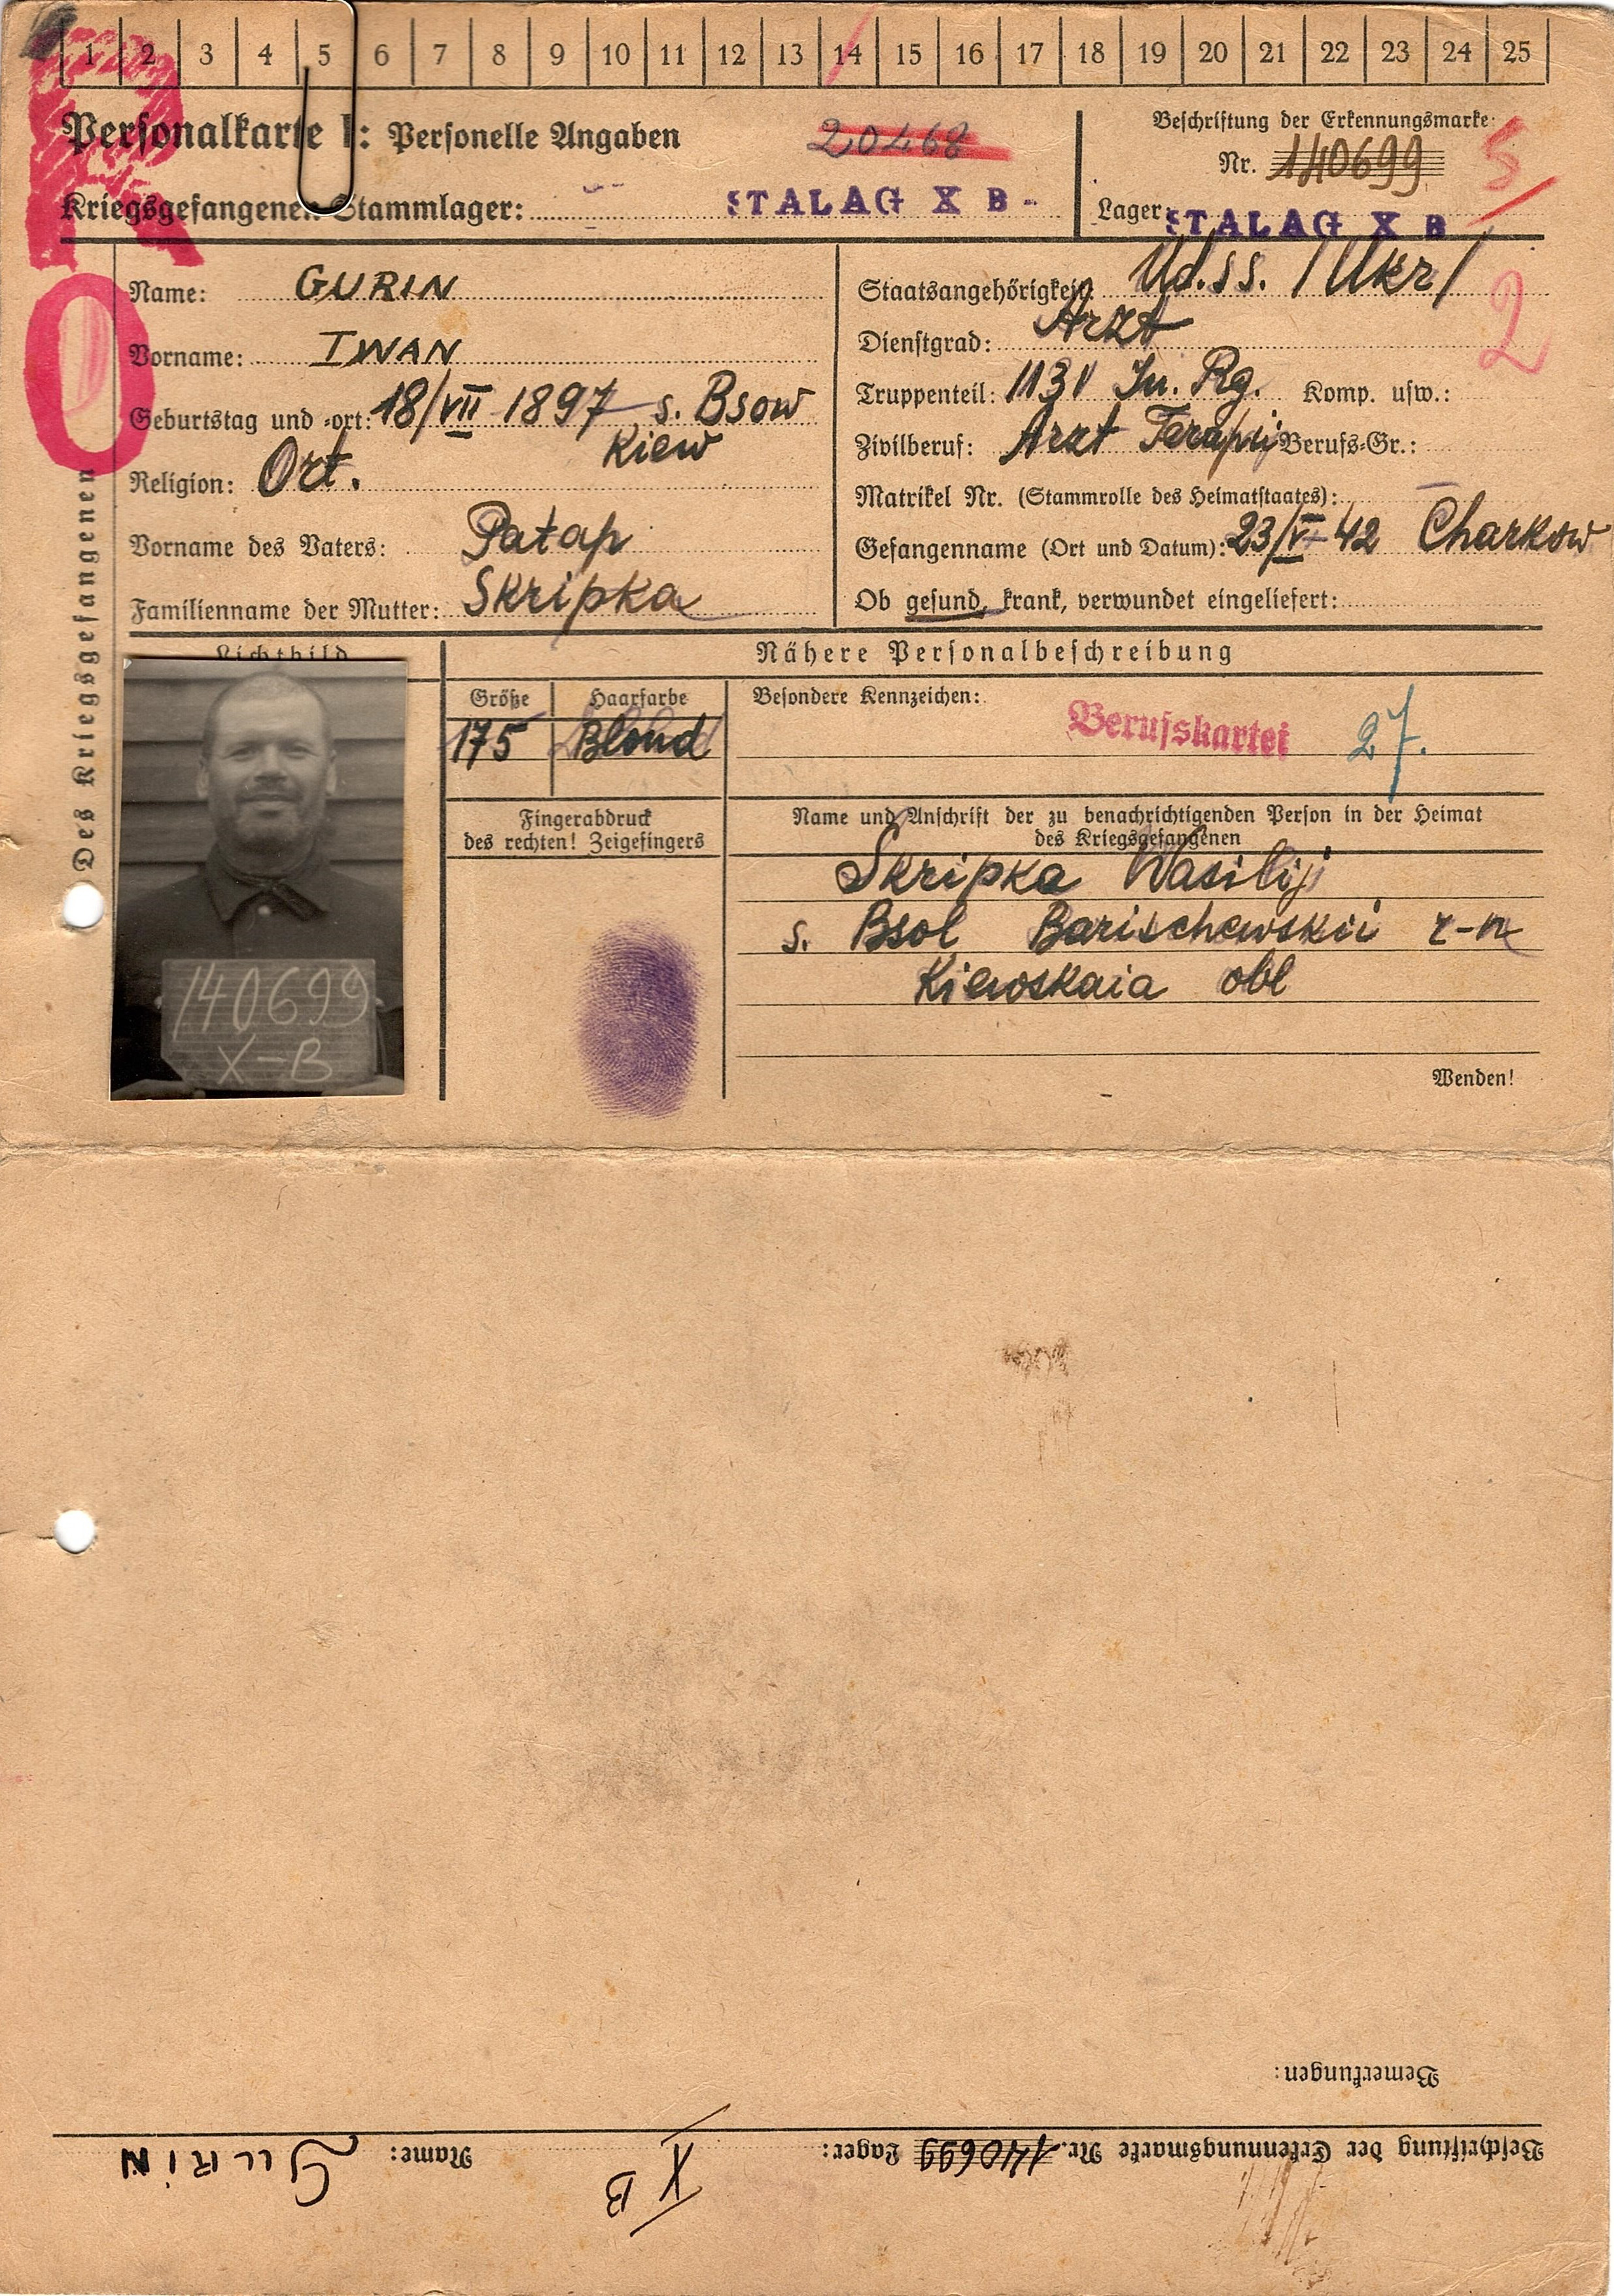 1 2 3 4 5 6 7 8 9 10 11 12 13 14 15 16 17 18 19 20 21 22 23 24 25
R
O
Personalkarte I: Personelle Angaben
20468
Kriegsgefangenen-Stammlager: STALAG X B
Beschriftung der Erkennungsmarke
Nr. 140699
5
Lager: STALAG X B
Des Kriegsgefangenen
Name: GURIN
Vorname: IWAN
Geburtstag und -ort: 18/VII 1897 s. Bsow
Kiew
Religion: Ort.
Vorname des Vaters: Patap
Familienname der Mutter: Skripka
Staatsangehörigkeit: Ud.SS. /Ukr/
2
Dienstgrad: Arzt
Truppenteil: In. Rg. Komp. usw.:
Zivilberuf: Arzt Berufs-Gr.:
Matrikel Nr. (Stammrolle des Heimatstaates): –
Gefangennahme (Ort und Datum): 23/V-42 Charkow
Ob gesund, krank, verwundet eingeliefert:
Lichtbild
140699
X-B
Nähere Personalbeschreibung
Größe
175
Haarfarbe
Blond
Besondere Kennzeichen:
Berufskartei 27.
Fingerabdruck
des rechten! Zeigefingers
Name und Anschrift der zu benachrichtigenden Person in der Heimat
des Kriegsgefangenen
Skripka Wasilij
s. Bsol Barischewskii r-n
Kiewskaia obl
Wenden!
Bemerkungen:
Beschriftung der Erkennungsmarke Nr. 140699 Lager: X B Name: GURIN